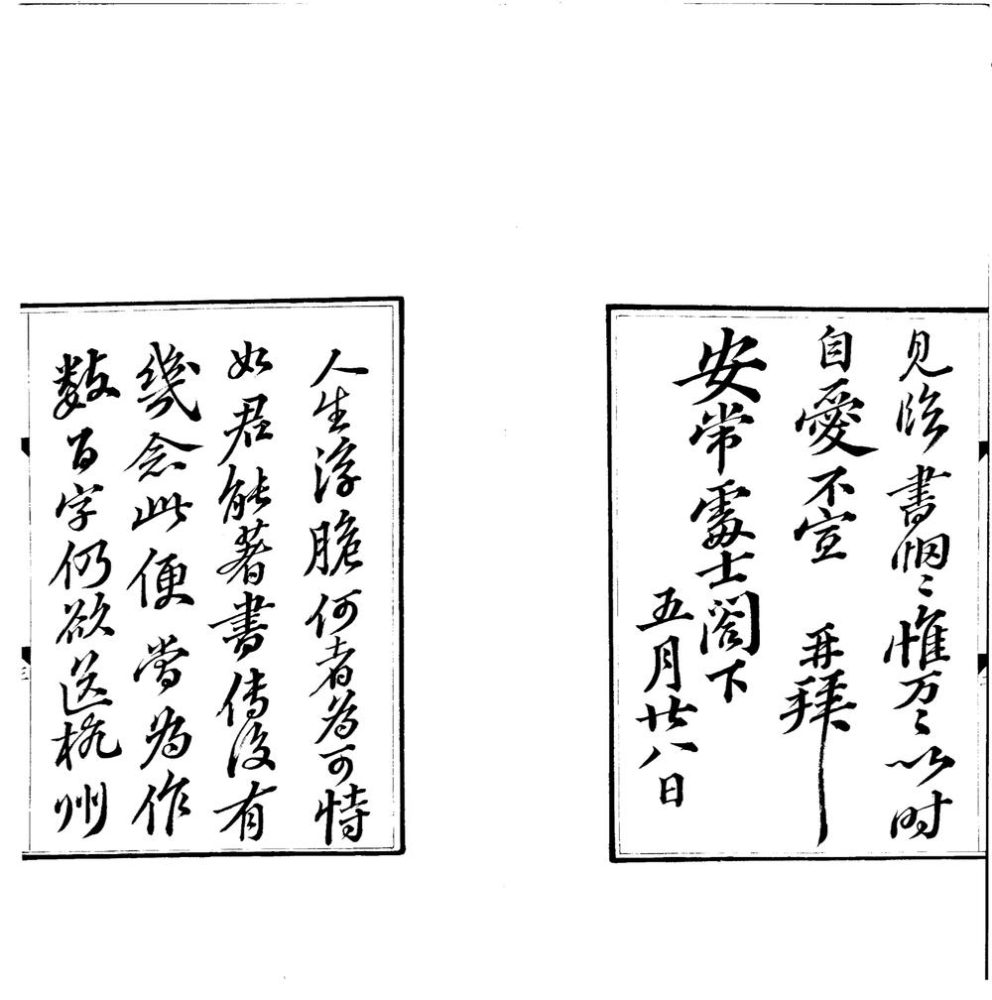 見臨書悃〻惟万〻以时
自愛不宣　再拜
安常處士閣下
五月廿八日
人生浮脆何者為可恃
如君能著書傳後有
幾念此便當為作
數百字仍欲送杭州